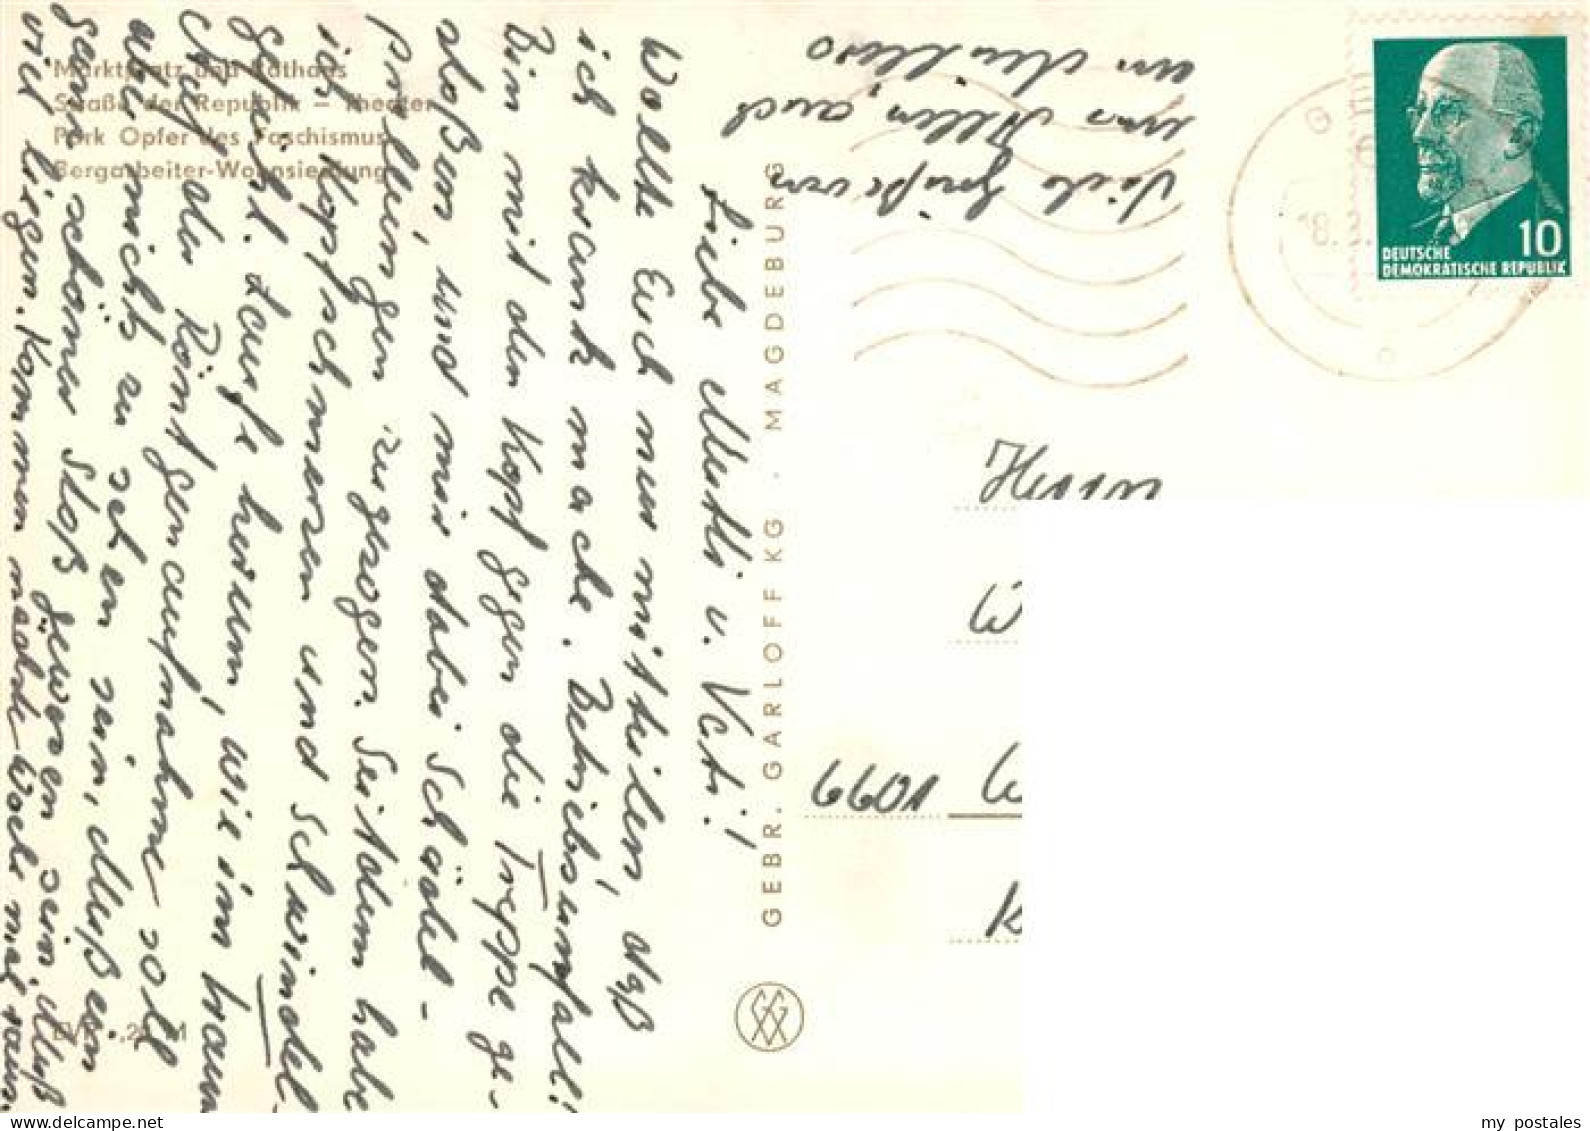 Marktplatz und Rathaus
Straße der Republik – Theater
Park Opfer des Faschismus
Bergarbeiter-Wohnsiedlung
Liebe Mutti u. Vati!
Wollte Euch nur mitteilen, daß
ich krank mache. Betriebsunfall!
Bin mit dem Kopf gegen die Treppe ge-
stoßen, und mir dabei Schädel-
prellungen zugezogen. Seitdem habe
ich Kopfschmerzen und Schwindel-
gefühl. Laufe herum, wie im traum
Auf der Röntgenaufnahme soll
nichts zu sehen sein. Muß ein
ganz schöner Stoß gewesen sein. Muß
viel liegen. Kommen nächste Woche mal
Viele Grüße von
uns Allen, auch
an
GEBR. GARLOFF KG · MAGDEBURG
DEUTSCHE
DEMOKRATISCHE REPUBLIK
10
18.3.
Herrn
W
6601 W
K
my postales